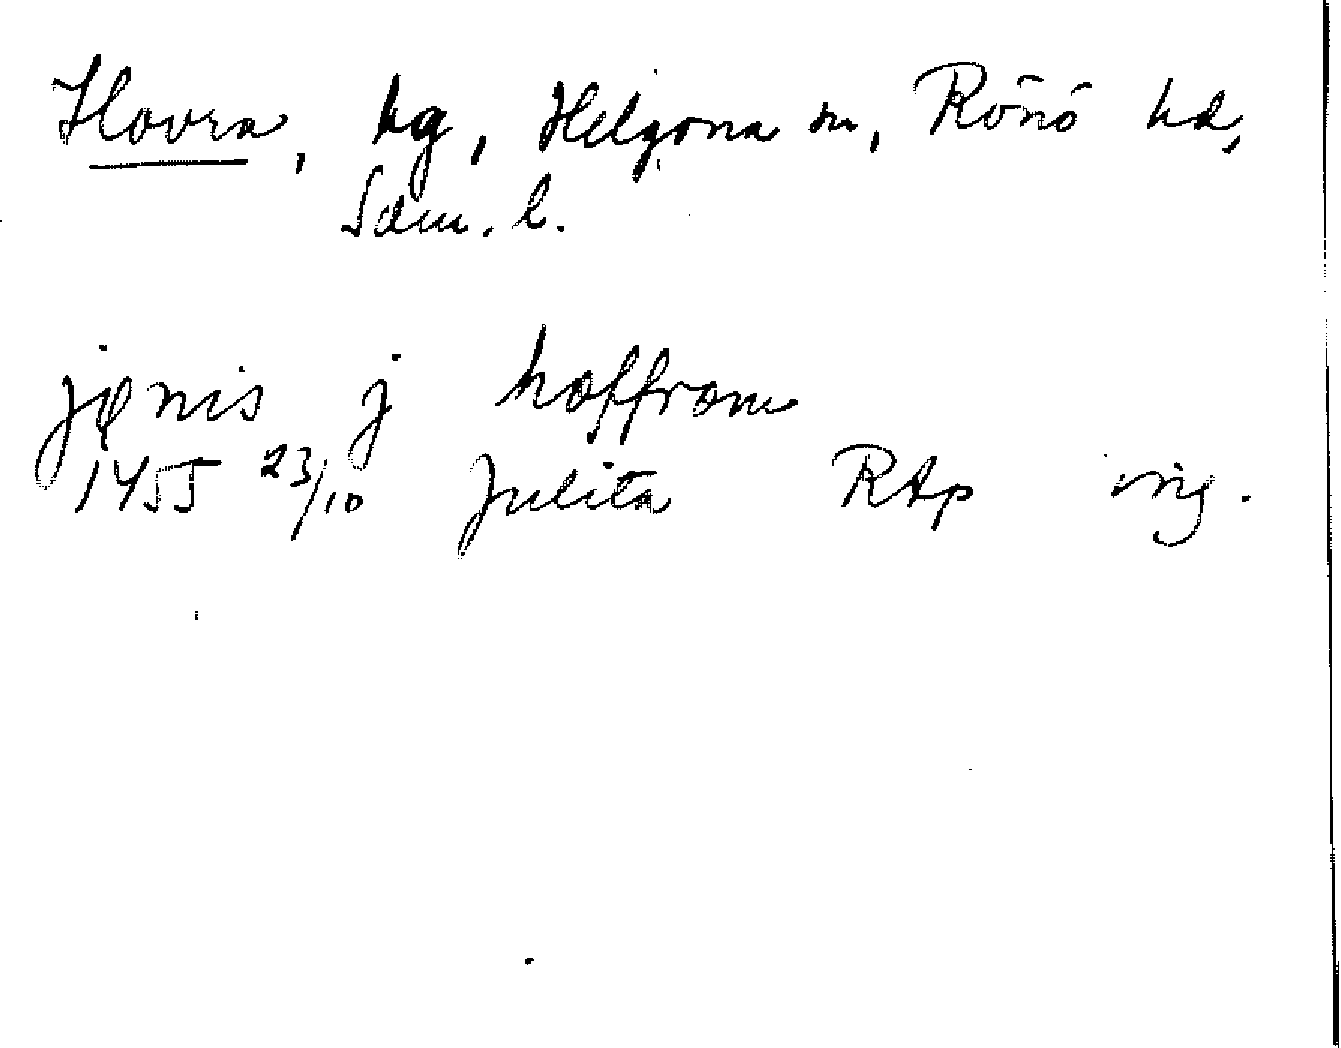 Hovra, hg, Helgona sn, Rönö hd,
Söm. l.
jønis j hoffrom
1455 23/10 Julita RAp orig.